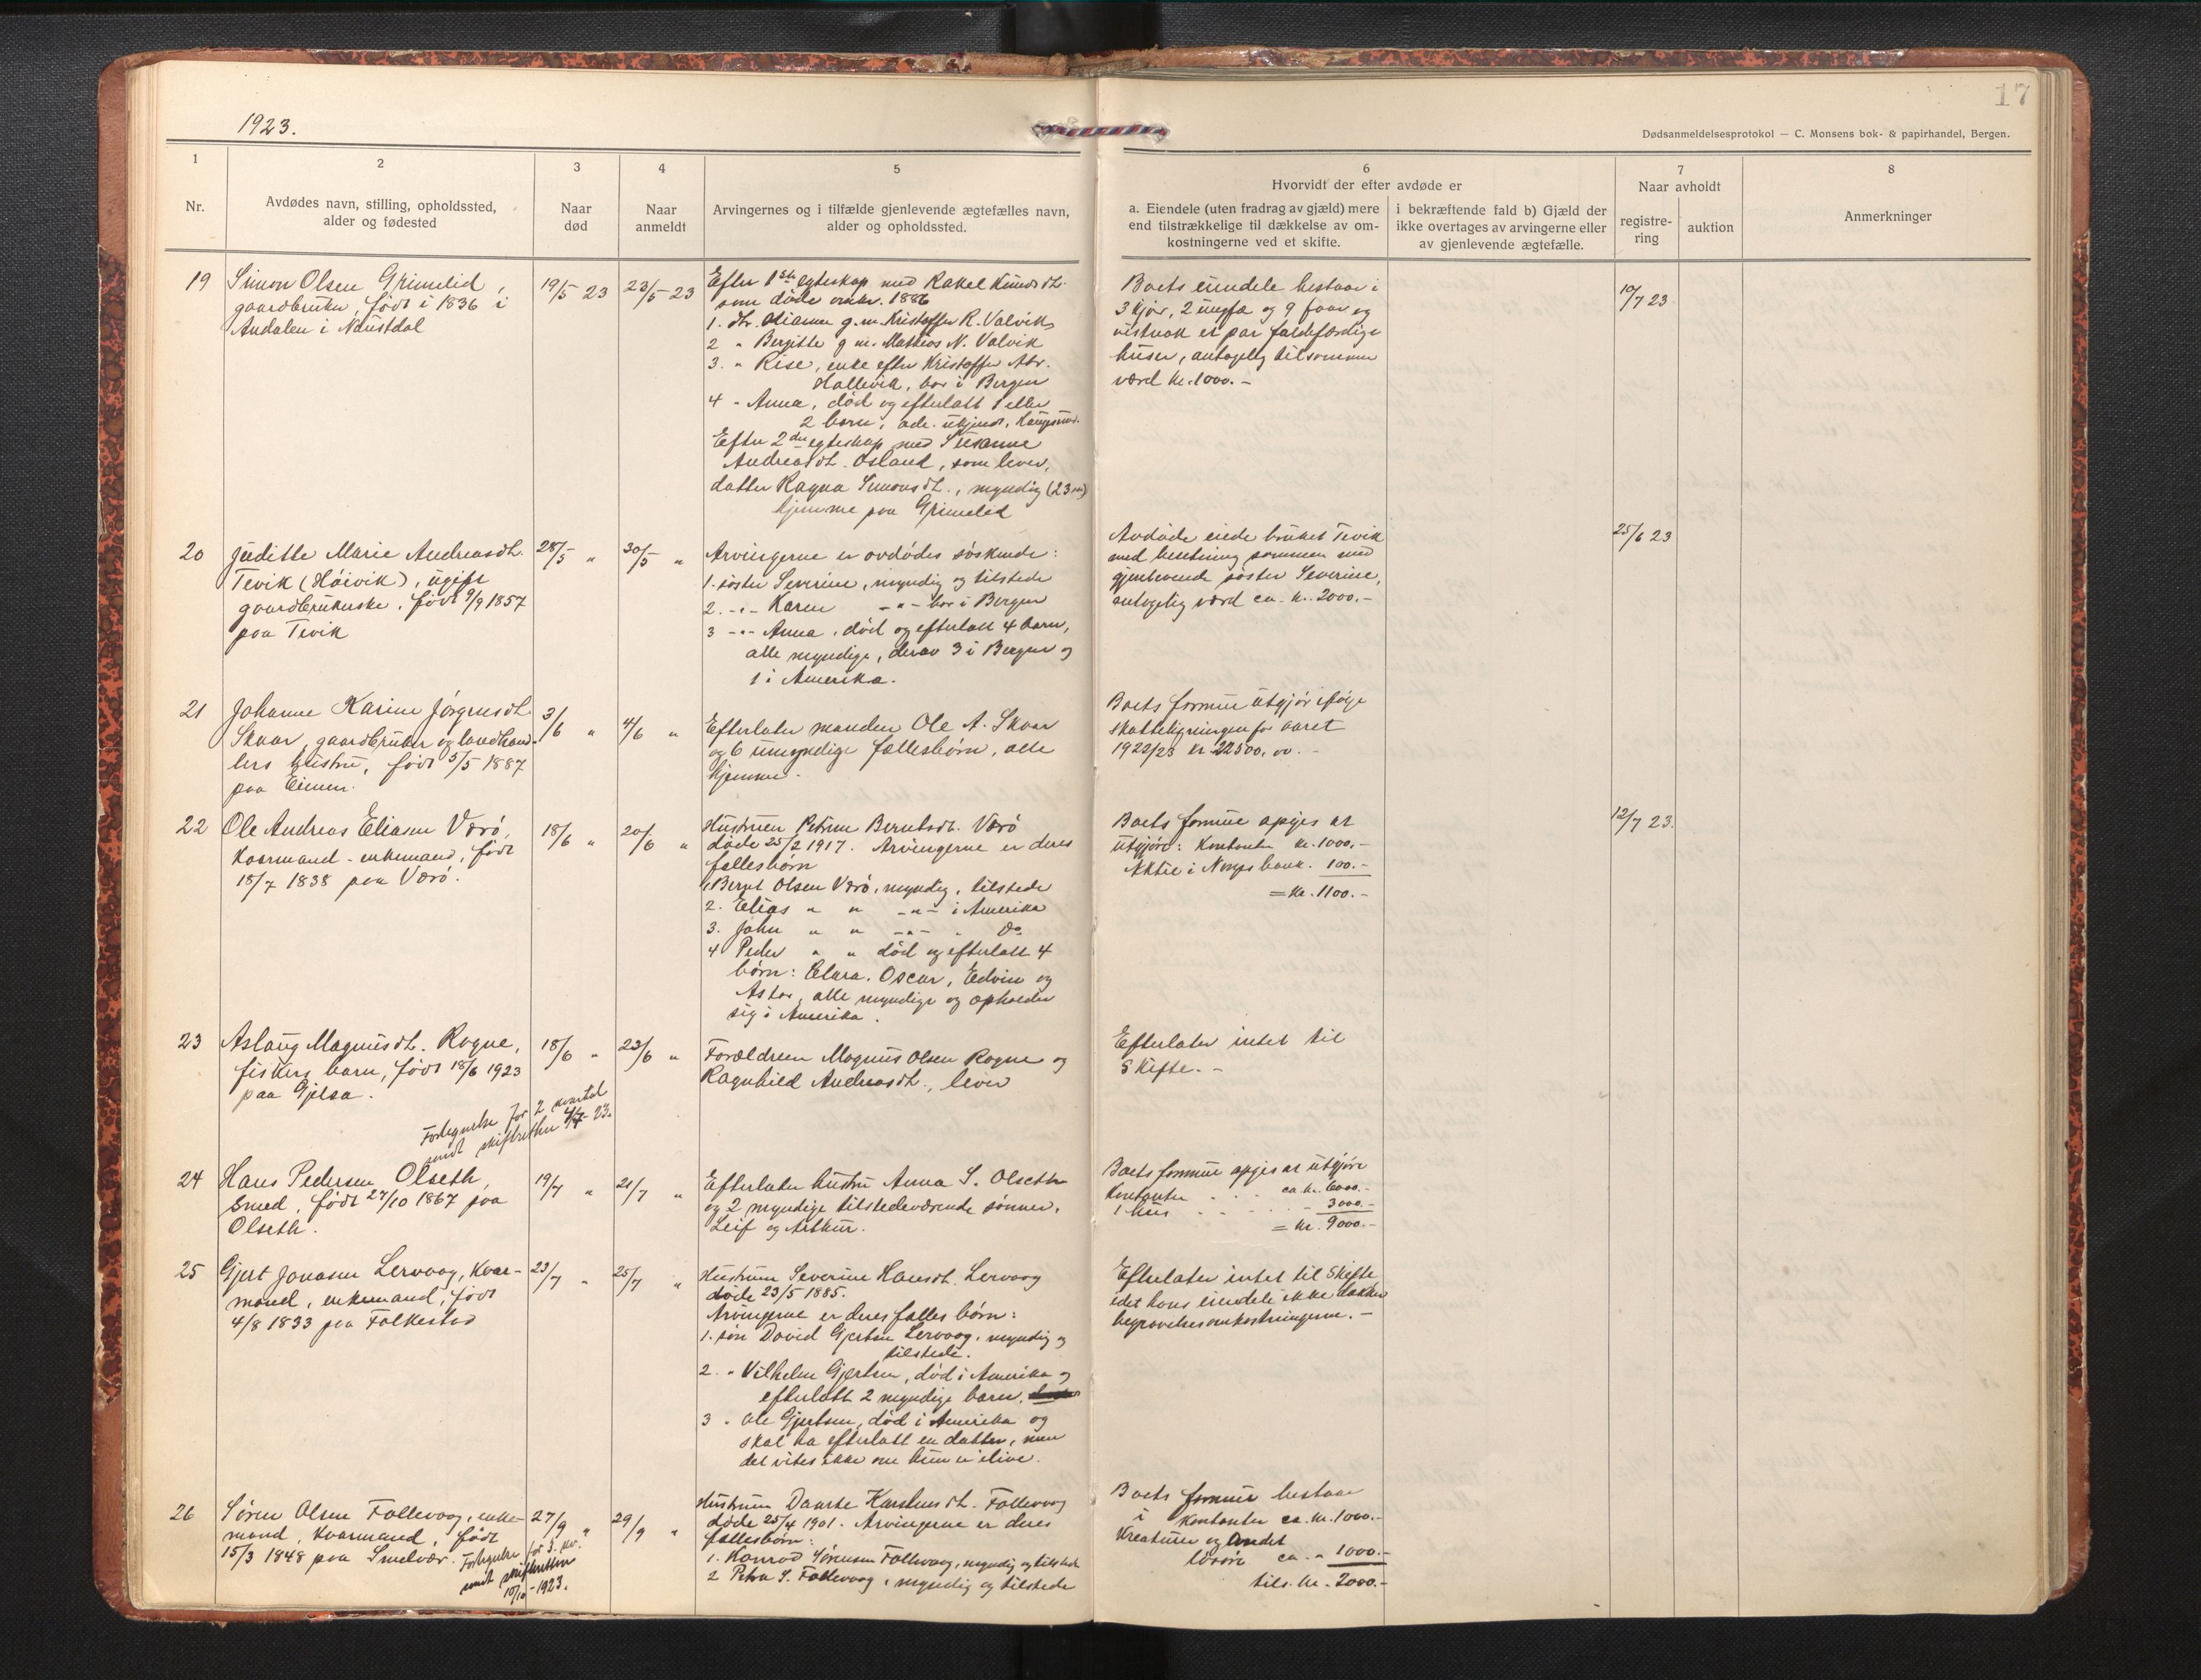 17
1923.
Dødsanmeldelsesprotokol — C. Monsens bok- & papirhandel, Bergen.
1
Nr.
2
Avdødes navn, stilling, opholdssted,
alder og fødested
3
Naar
død
4
Naar
anmeldt
5
Arvingernes og i tilfælde gjenlevende ægtefælles navn,
alder og opholdssted.
6
Hvorvidt der efter avdøde er
a. Eiendele (uten fradrag av gjæld) mere
end tilstrækkelige til dækkelse av om-
kostningerne ved et skifte.
i bekræftende fald b) Gjæld der
ikke overtages av arvingerne eller
av gjenlevende ægtefælle.
7
Naar avholdt
registre-
ring
auktion
8
Anmerkninger
19
Simon Olsen Grimelid,
gaardbruker, født i 1836 i
Andalen i Naustdal
19/5 23
23/5 23
Efter 1ste egteskap med Rakel Knudsdt.
som døde omkr. 1886
1. dtr. Oliane g.m. Kristoffer R. Valvik
2 " Bergitte g.m. Mathias N. Valvik
3. " Rise, enke efter Kristoffer Abr.
Hallevik, bor i Bergen
4 " Anna, død og efterlatt 1 eller
2 barn, adr. ukjendt,
Efter 2det egteskap med Susanne
Andreasdt. Osland, som lever,
datter Ragna Simonsdt., myndig (23 aar)
hjemme paa Grimelid
Boets eiendele bestaar i
3 kjør, 2 ungfæ og 9 faar og
vistnok et par faldefærdige
huser, antagelig tilsammen
værd kr. 1000.-
10/7 23
20
Juditte Marie Andreasdt.
Tevik (Høivik), ugift
gaardbrukerske, født 9/9 1857
paa Tevik
28/5 "
30/5 "
Arvingerne er avdødes søskende:
1. søster Severine, myndig og tilstede
2. -"- Karen -"- bor i Bergen
3 -"- Anna, død og efterlatt 4 barn,
alle myndige, derav 3 i Bergen og
1 i Amerika.
Avdøde eiede bruket Tevik
med besetning sammen med
gjenlevende søster Severine,
antagelig værd ca. kr. 2000.-
25/6 23
21
Johanne Karine Jørgensdt.
Skaar, gaardbruker og landhand-
lers hustru, født 5/5 1887
paa Eimen.
3/6 "
4/6 "
Efterlater manden Ole A. Skaar
og 6 umyndige fællesbørn, alle
hjemme.
Boets formue utgjør ifølge
skatteligningen for aaret
1922/23 kr. 22500,00.-
22
Ole Andreas Eliasen Værø,
kaarmand - enkemand, født
18/7 1838 paa Værø.
18/6 "
20/6 "
Hustruen Petrine Berntsdt. Værø
døde 25/2 1917. Arvingerne er deres
fællesbørn
1. Bernt Olsen Værø, myndig, tilstede
2. Elias " " -"- i Amerika
3. John " " -"- " Do
4 Peder " " død og efterlatt 4
børn: Clara, Oscar, Edvin og
Astor, alle myndige og opholder
sig i Amerika.
Boets formue opgis at
utgjøre: Kontanter kr. 1000.-
Aktie i Norges bank. 100.-
= kr. 1100.-
12/7 23.
23
Aslaug Magnusdt. Rogne,
fiskers barn, født 18/6 1923
paa Gjelsa.
18/6 "
23/6 "
Forældrene Magnus Olsen Rogne og
Ragnhild Andreasdt., lever
Efterlater intet til
Skifte.-
Fortegnelse for 2 kvartal
sendt skifteretten 4/7-23.
24
Hans Pedersen Olseth,
Smed, født 27/10 1867 paa
Olseth.
19/7 "
21/7 "
Efterlater hustru Anna S. Olseth
og 2 myndige tilstedeværende sønner,
Leif og Arthur.
Boets formue opgis at utgjøre
Kontanter . . . ca kr. 6000.-
1 hus . . . . 3000.-
= kr. 9000.-
25
Gjert Jonasen Lervaag, kaar-
mand, enkemand, født
4/8 1833 paa Folkestad
23/7 "
25/7 "
Hustruen Severine Hansdt. Lervaag
døde 23/5 1885.
Arvingerne er deres fælles børn:
1. søn David Gjertsen Lervaag, myndig og
tilstede.
2. " Vilhelm Gjertsen, død i Amerika og
efterlatt 2 myndige barn.
3 " Ole Gjertsen, død i Amerika og
skal ha efterlatt en datter, men
det vites ikke om hun er ilive.
Efterlater intet til Skifte
idet hans eiendele ikke dækker
begravelsesomkostningerne.-
26
Søren Olsen Follevaag, enke-
mand, kaarmand, født
15/3 1848 paa Smelvær.
27/9 "
29/9 "
Fortegnelse for 3. kv.
sendt skifteretten
10/10-1923.
Hustruen Daarte Karstensdt. Follevaag
døde 25/4 1901. Arvingerne er deres
fællesbørn:
1. Konrad Sørensen Follevaag, myndig og tilstede
2 Petra S. Follevaag, myndig og tilstede
Boets formue bestaar
i Kontanter ca. kr. 1000.-
Kreaturer og andet
løsøre ca. " 1000.-
tils. kr. 2000.-